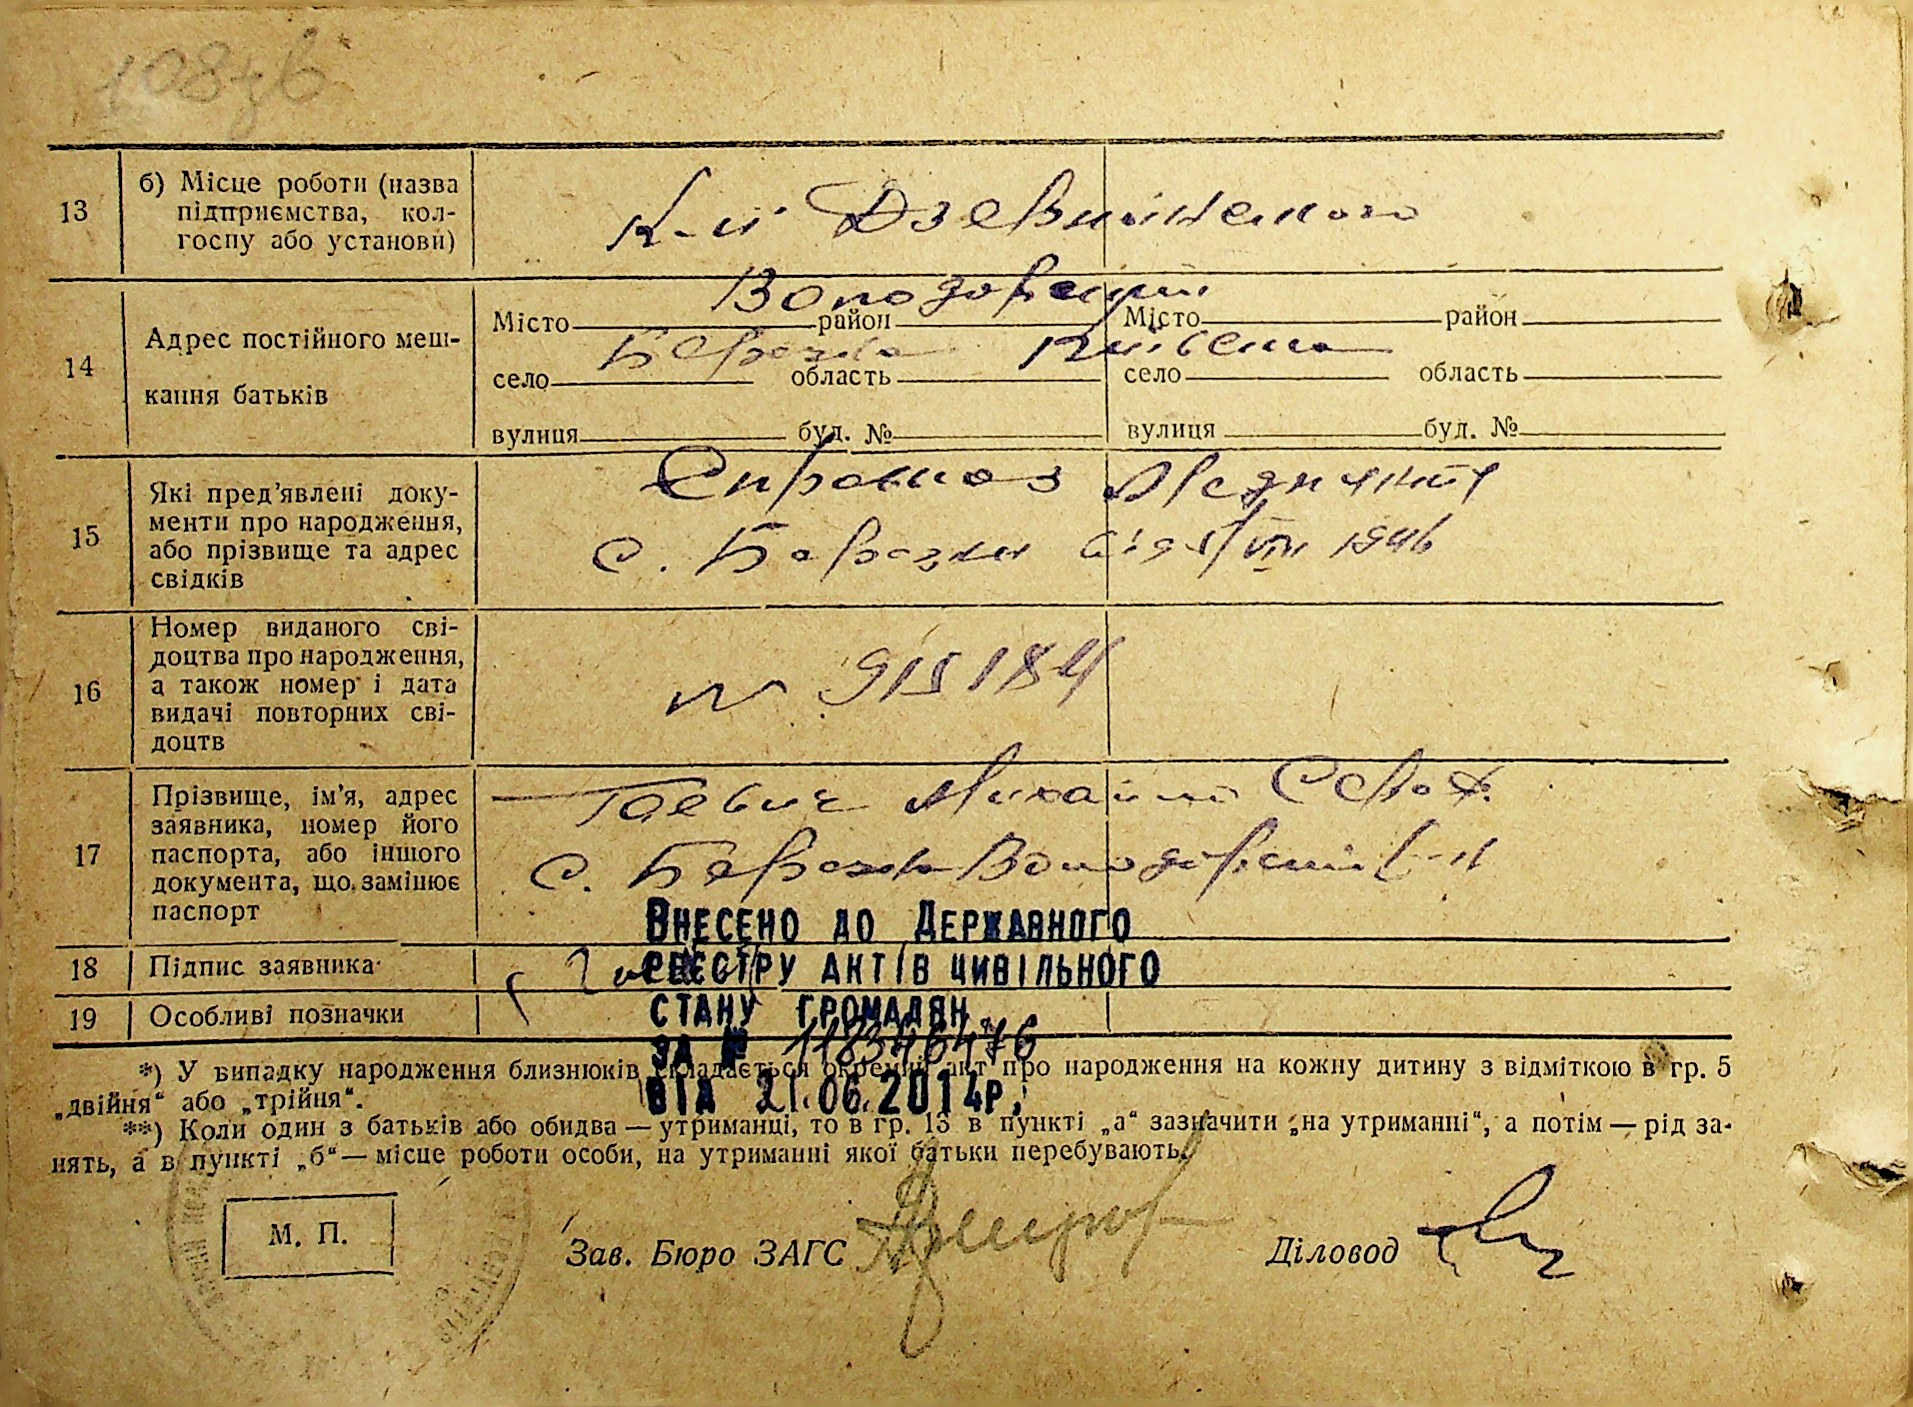 13
б) Місце роботи (назва
підприємства, кол-
госпу або установи)
К-п Дзержинского
14
Адрес постійного меш-
кання батьків
Володарский
Місто район Місто район
Березна Київська
село область село область
вулиця буд. № вулиця буд. №
15
Які пред’явлені доку-
менти про народження,
або прізвище та адрес
свідків
Справка
с. Березна від VIII 1946
16
Номер виданого сві-
доцтва про народження,
а також номер і дата
видачі повторних сві-
доцтв
№ 915184
17
Прізвище, ім’я, адрес
заявника, номер його
паспорта, або іншого
документа, що замінює
паспорт
Михайло
с. Березна Володарский р-н
18 Підпис заявника
19 Особливі позначки
Внесено до Державного
реєстру актів цивільного
стану громадян
за № 118346476
від 21.06.2014р.
*) У випадку народження близнюків складається окремий акт про народження на кожну дитину з відміткою в гр. 5
„двійня“ або „трійня“.
**) Коли один з батьків або обидва — утриманці, то в гр. 13 в пункті „а“ зазначити „на утриманні“, а потім — рід за-
нять, а в пункті „б“ — місце роботи особи, на утриманні якої батьки перебувають.
М. П.
Зав. Бюро ЗАГС Діловод